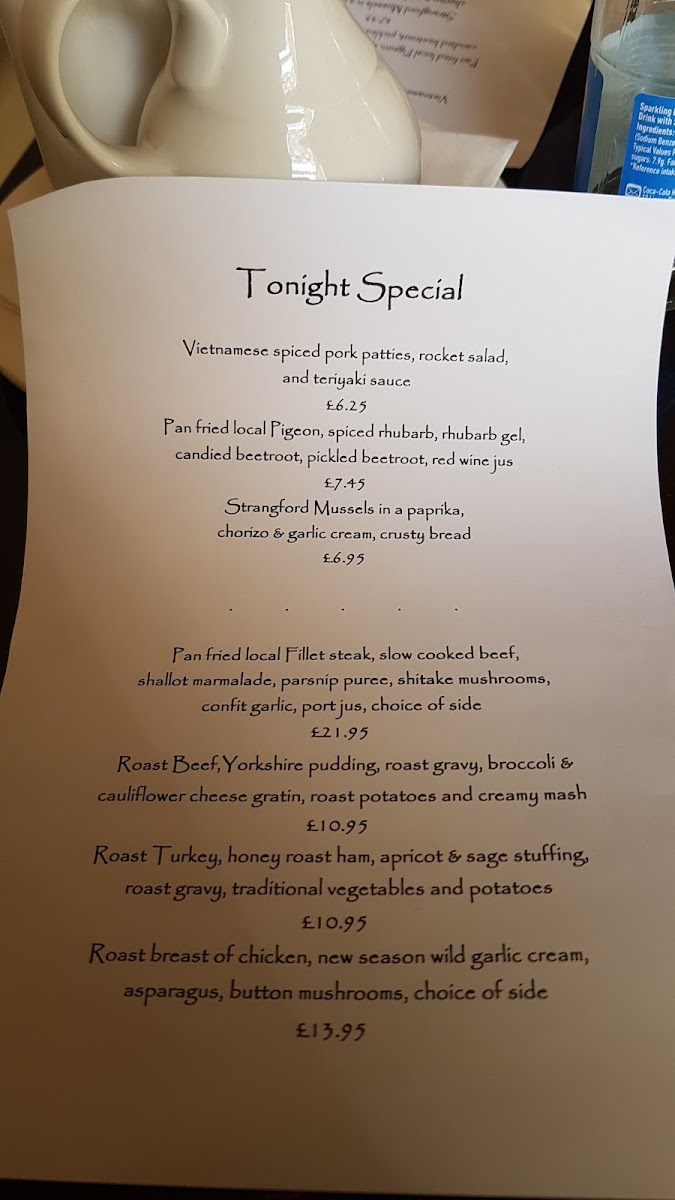 Tonight Special
Vietnamese spiced pork patties, rocket salad,
and teriyaki sauce
£6.25
Pan fried local Pigeon, spiced rhubarb, rhubarb gel,
candied beetroot, pickled beetroot, red wine jus
£7.45
Strangford Mussels in a paprika,
chorizo & garlic cream, crusty bread
£6.95
. . . . .
Pan fried local Fillet steak, slow cooked beef,
shallot marmalade, parsnip puree, shitake mushrooms,
confit garlic, port jus, choice of side
£21.95
Roast Beef,Yorkshire pudding, roast gravy, broccoli &
cauliflower cheese gratin, roast potatoes and creamy mash
£10.95
Roast Turkey, honey roast ham, apricot & sage stuffing,
roast gravy, traditional vegetables and potatoes
£10.95
Roast breast of chicken, new season wild garlic cream,
asparagus, button mushrooms, choice of side
£13.95
Sparkling
Drink with
Ingredients:
(Sodium Benzo
Typical Values
sugars: 7.9g. Fa
*Reference intak
Coca-Cola
Vietnamese
Pan fried local Pigeon
candied beetroot, pickled
£7.45
Strangford Mussels in a